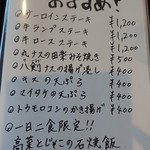 おすすめ!
◎サーロインステーキ ¥1,200
◎牛ランプステーキ ¥1,200
◎牛ロースステーキ ¥1,200
◎丸ナスの田楽みそ焼き ¥500
◎の揚げ浸し ¥400
◎キスの天ぷら ¥400
◎マイタケの天ぷら ¥400
◎トウモロコシのかき揚げ ¥400
◎一日二食限定!!
高菜とじゃこの石焼飯